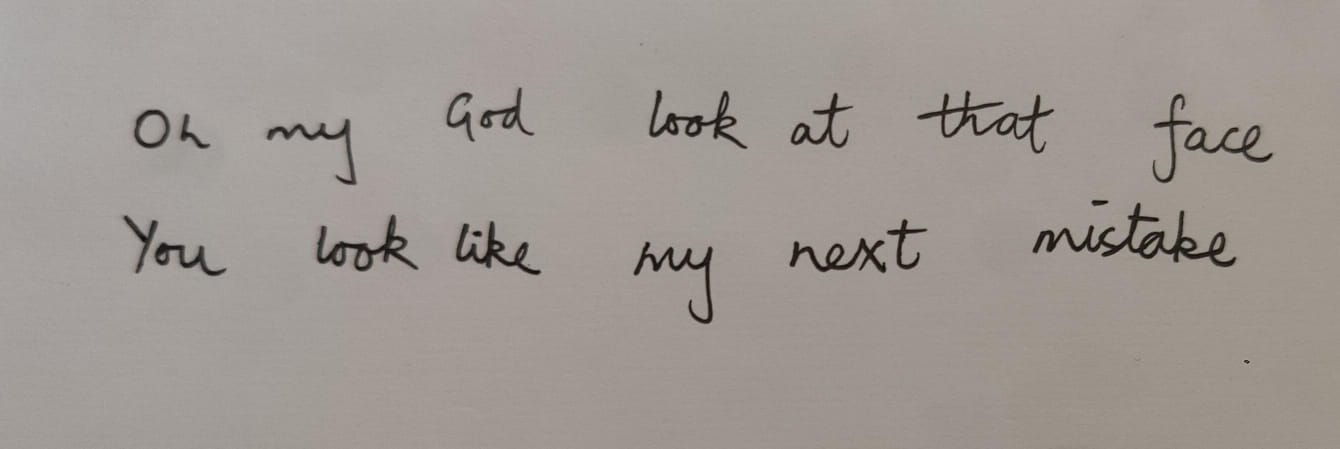 Oh my God look at that face
You look like my next mistake